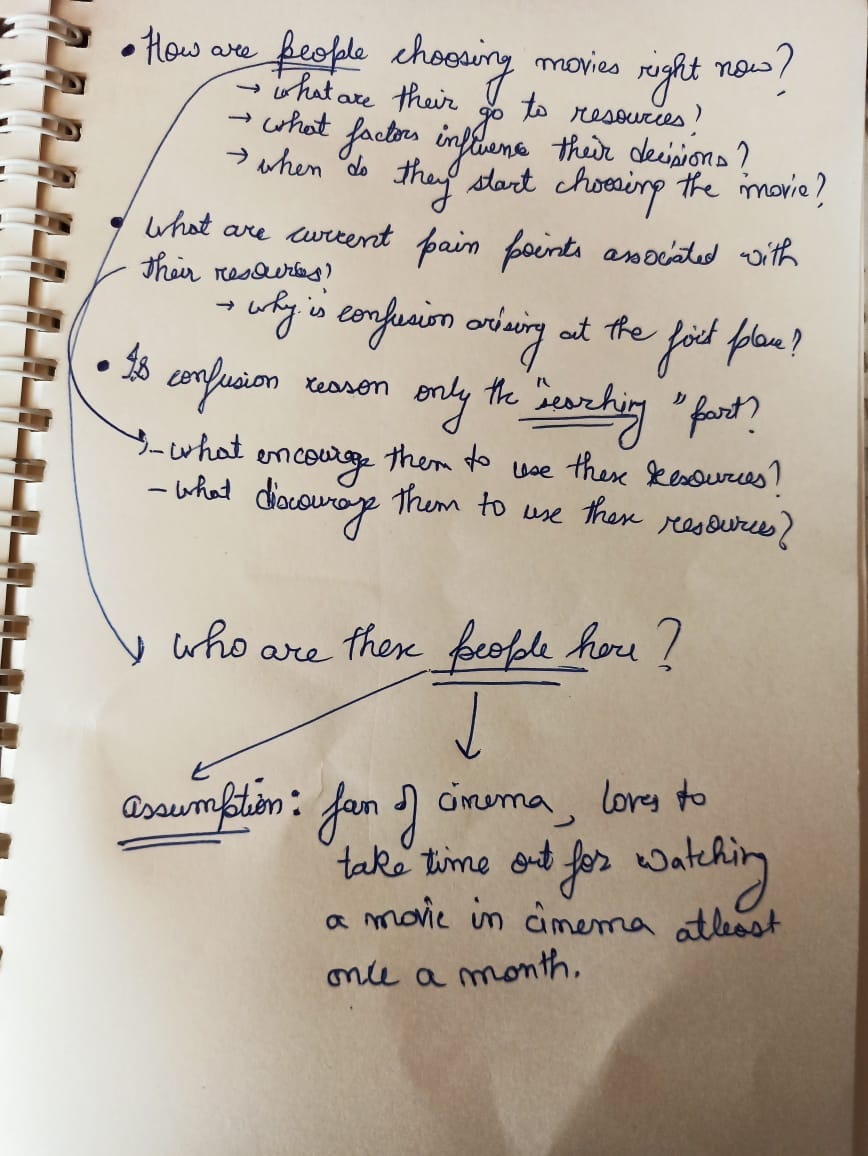 • How are people choosing movies right now?
→ what are their go to resources?
→ what factors influence their decisions?
→ when do they start choosing the movie?
• What are current pain points associated with
their resources?
→ why is confusion arising at the first place?
• Is confusion reason only the "searching" part?
- what encourage them to use these resources?
- what discourage them to use these resources?
who are these people here?
assumption: fan of cinema, loves to
take time out for watching
a movie in cinema atleast
once a month.